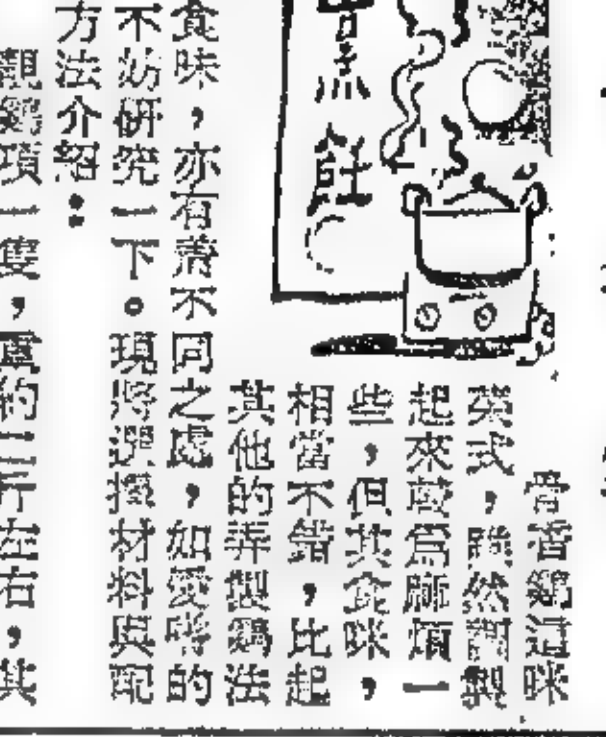 骨香鷄這味
菜式，雖然調製
起來較爲麻煩一
些，但其食味，
相當不錯，比起
其他的弄製鷄法
食味，亦有着不同之處，如愛嗜的
不妨研究一下。現將選擇材料與配
方法介紹：
鷄項一隻，重約二斤左右，其